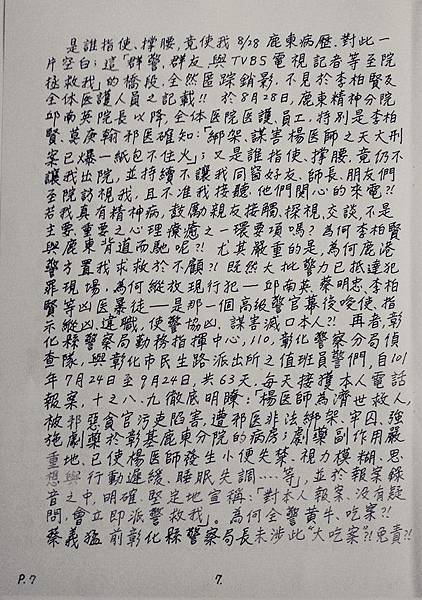 是誰指使、撐腰,竟使我8/28鹿東病歷,對此一
片空白;這「群警、群友、與TVBS電視記者等至院
拯救我」的橋段,全然匿踪銷影,不見於李柏賢及
全体医護人員之記載!! 於8月28日,鹿東精神分院
邱南英院長以降,全体医院医護、員工,特別是李柏
賢、莫庚翰邪医確知:「綁架、謀害楊医師之天大刑
案已爆—紙包不住火」;又是誰指使、撐腰,竟仍不
讓我出院,並持續不讓我同窗好友、師長、朋友們
至院訪視我,且不准我接聽他們関心的來電?!
若我真有精神病,鼓勵親友接觸、探視、交談,不是
主要、重要之心理療癒之一環要項嗎?為何李柏賢
與鹿東背道而馳呢?! 尤其嚴重的是,為何鹿港
警方置我求救於不顧?! 既然大批警力已抵達犯
罪現場,為何縱放現行犯—邱南英、蔡明忠、李柏
賢等凶医暴徒—是那一個高級警官幕後唆使、指
示縱凶、違職,使警協凶、謀害滅口本人?! 再者,彰
化縣警察局勤務指揮中心,110,彰化警察分局偵
查隊,與彰化市民生路派出所之值班員警們,自101
年7月24日至9月24日,共63天,每天接獲本人電話
報案,十之八、九徹底明瞭:「楊医師為濟世救人,
被邪惡貪官污吏陷害,遭邪医非法綁架、牢囚、強
施劇藥於彰基鹿東分院的病房;劇藥副作用嚴
重地,已使楊医師發生小便失禁、視力模糊、思
想與行動遲緩、睡眠失調……等」,並於報案錄
音之中,明確、堅定地宣稱:「對本人報案,沒有疑
問,會立即派警救我」。為何全警黃牛、吃案?!
蔡義猛前彰化縣警察局長未涉此"大吃案"?!免責?!
P.7
7.